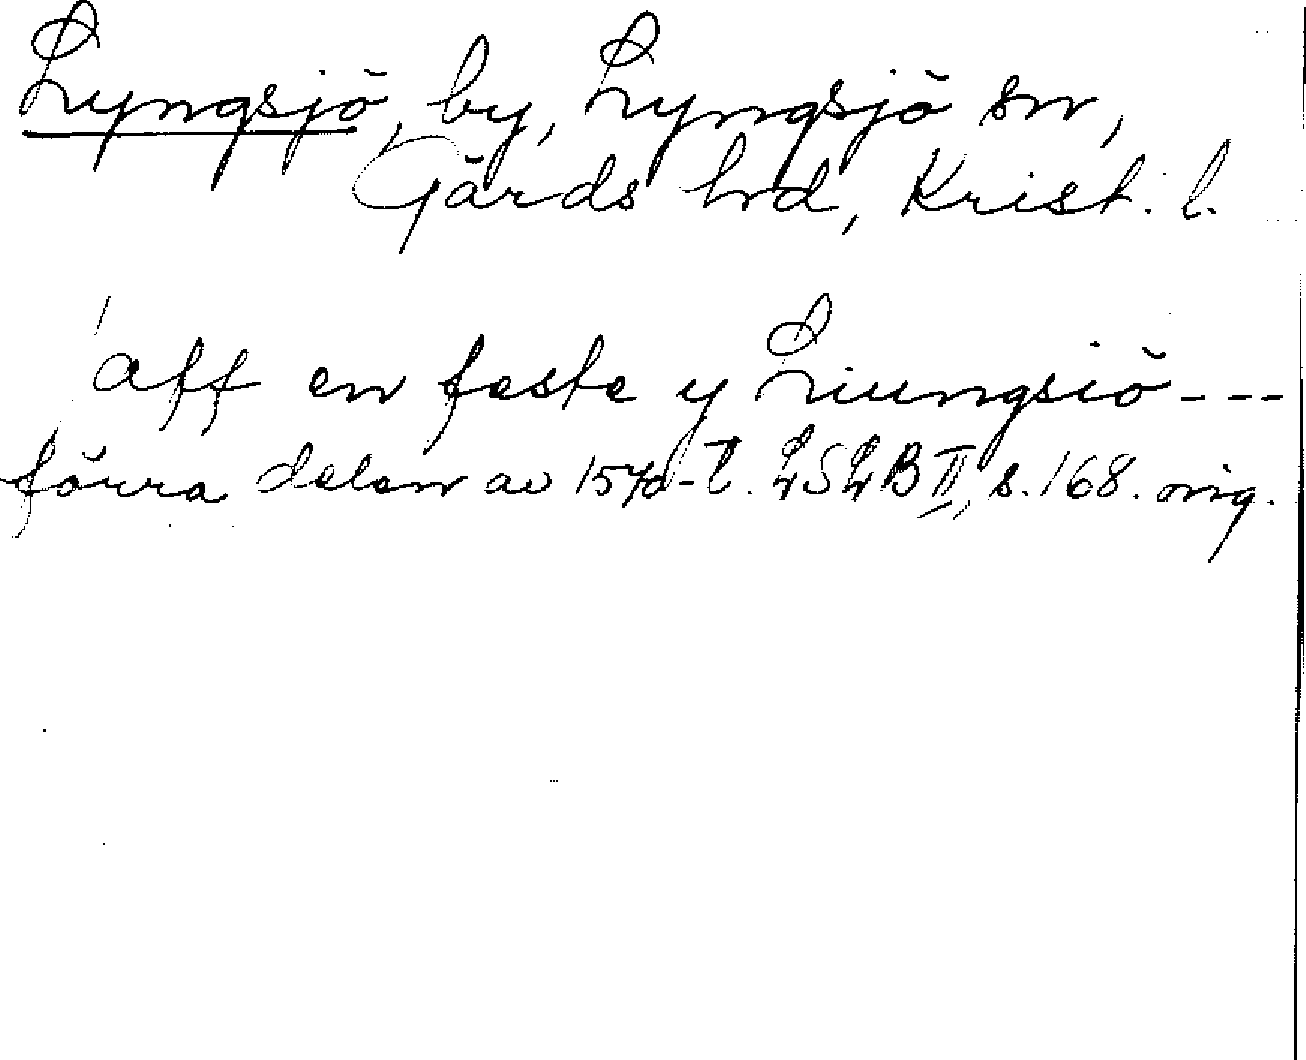 Lyngsjö, by, Lyngsjö sn,
Gärds hrd, Krist. l.
aff en feste y Liungsiö ---
förra delen av 1570-t. LSLB II, s. 168. orig.